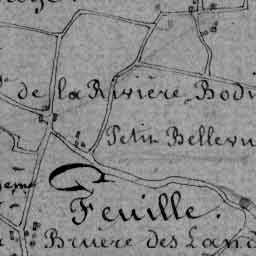 de la Rivière Bodi
Petit Bellevu
ème
Feuille.
Bruère des Land